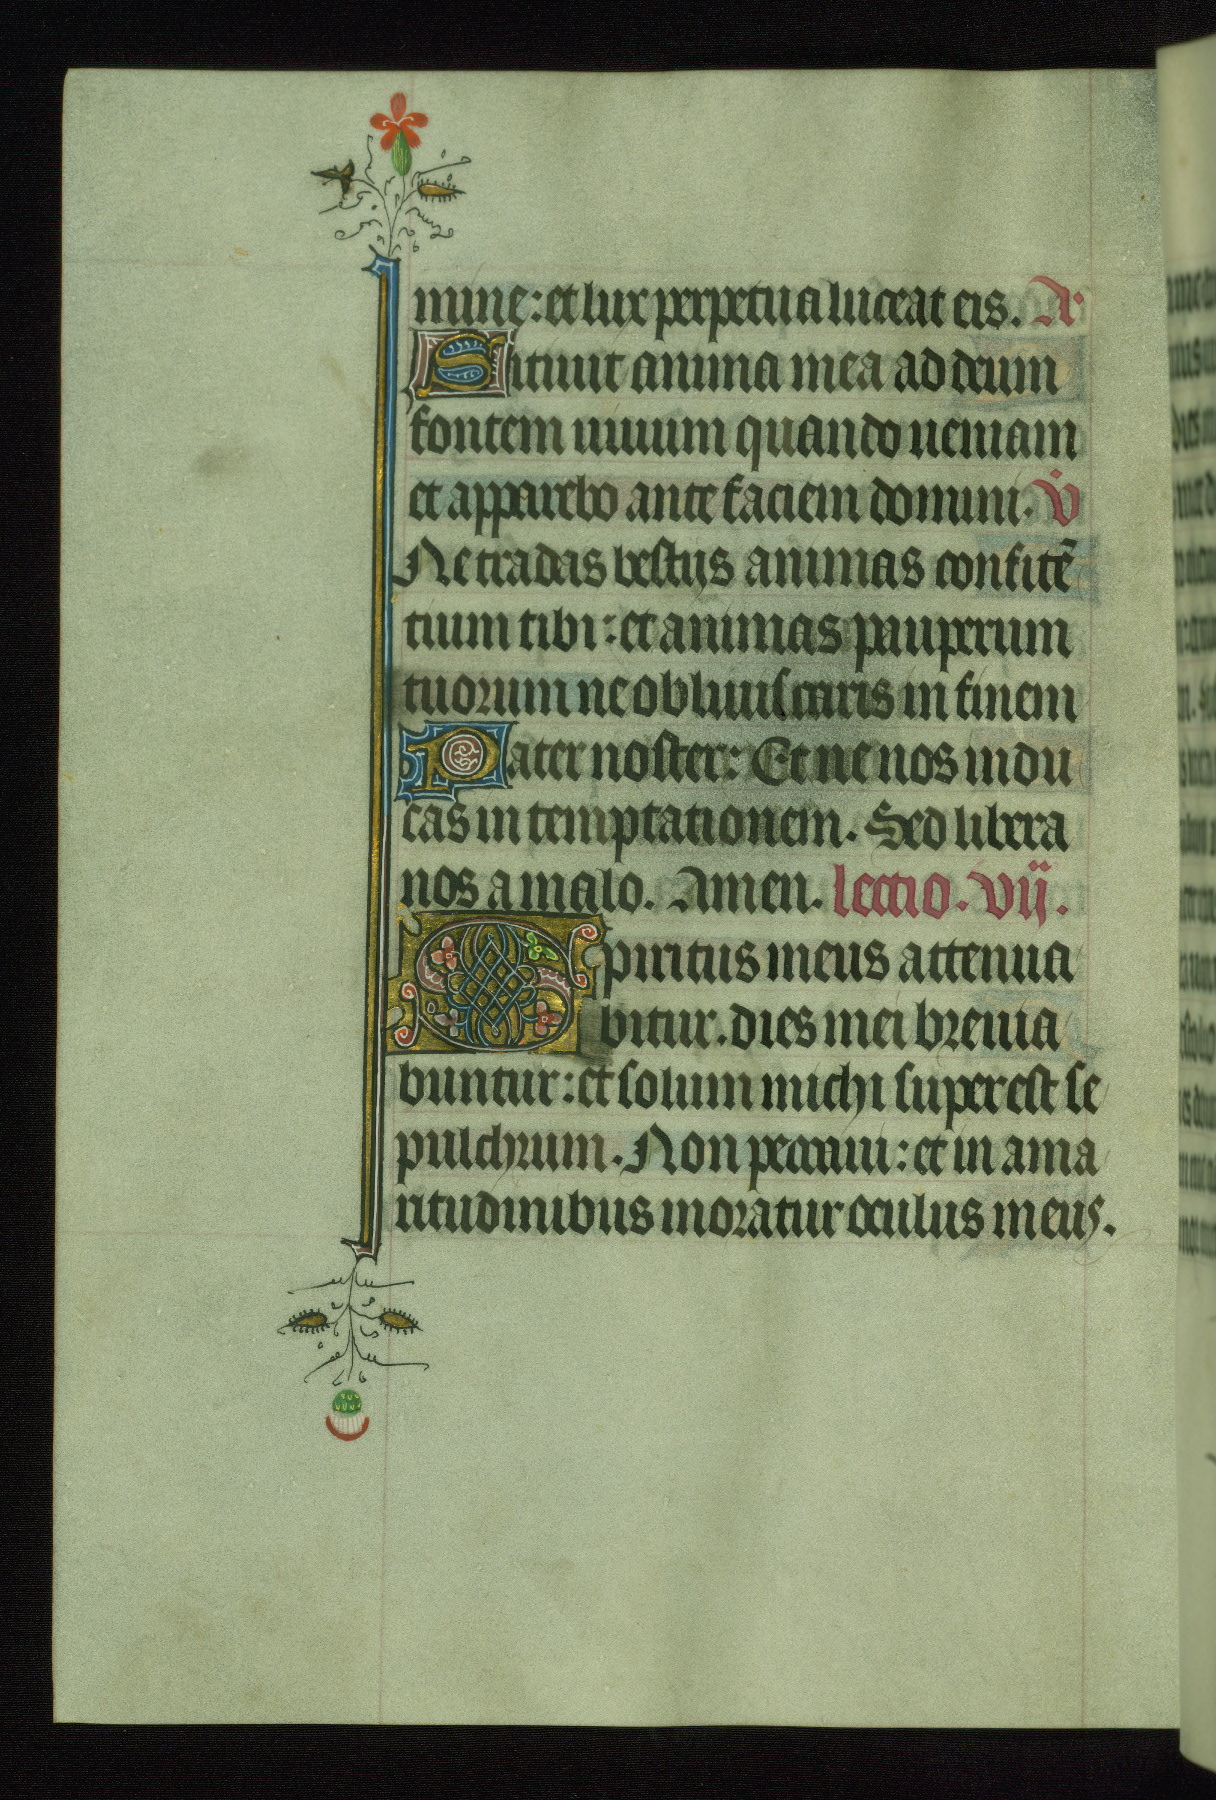 mine: et lux perpetua luceat eis. A
Sitiuit anima mea ad deum
fontem uiuum quando ueniam
et apparebo ante faciem domini. V
Ne tradas bestijs animas confitē
tium tibi: et animas pauperum
tuorum ne obliuiscaris in finem
Pater noster: Et ne nos indu
cas in temptationem. Sed libera
nos a malo. Amen. lectio. vij.
Spiritus meus attenua
bitur. dies mei breuia
buntur: et solum michi superest se
pulchrum. Non peccaui: et in ama
ritudinibus moratur oculus meus.